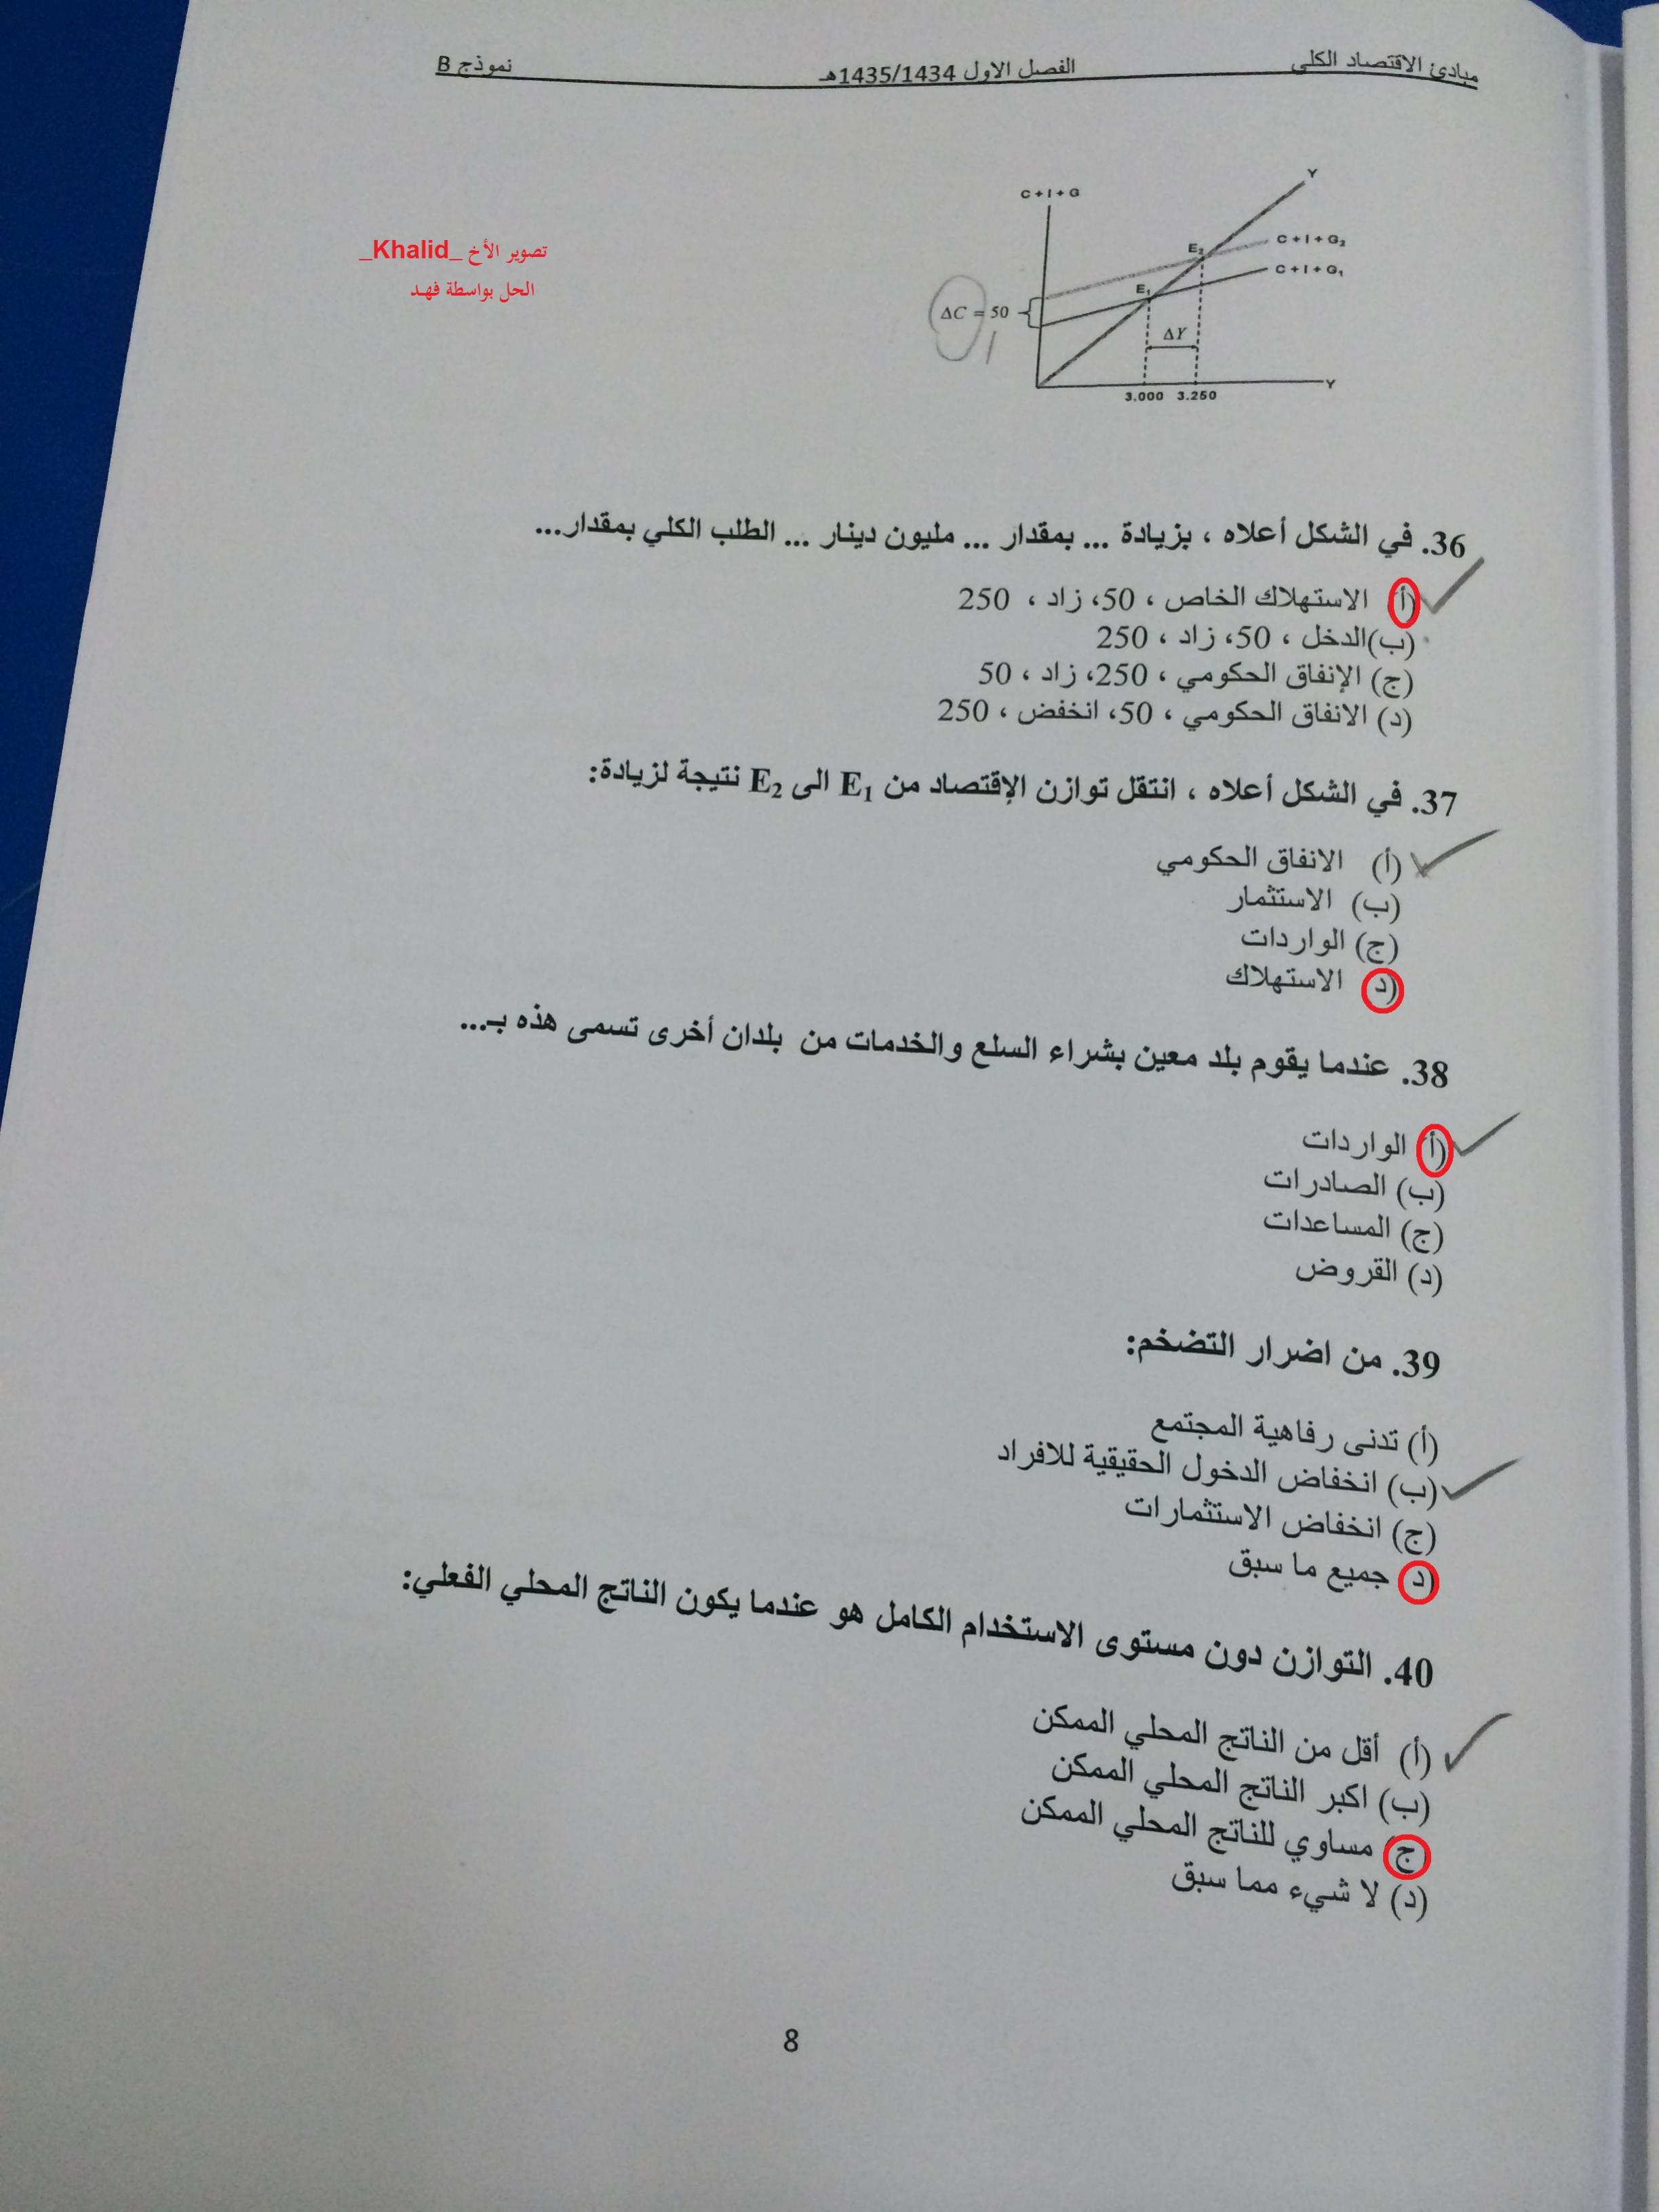 مبادئ الاقتصاد الكلي
الفصل الاول 1435/1434هـ
نموذج B
تصوير الأخ _Khalid_
الحل بواسطة فهد
C+I+G
Y
C+I+G₂
C+I+G₁
E₂
E₁
ΔC = 50
ΔY
Y
3.000 3.250
36. في الشكل أعلاه ، بزيادة ... بمقدار ... مليون دينار ... الطلب الكلي بمقدار...
(أ) الاستهلاك الخاص ، 50، زاد ، 250
(ب)الدخل ، 50، زاد ، 250
(ج) الإنفاق الحكومي ، 250، زاد ، 50
(د) الانفاق الحكومي ، 50، انخفض ، 250
37. في الشكل أعلاه ، انتقل توازن الإقتصاد من E₁ الى E₂ نتيجة لزيادة:
(أ) الانفاق الحكومي
(ب) الاستثمار
(ج) الواردات
(د) الاستهلاك
38. عندما يقوم بلد معين بشراء السلع والخدمات من بلدان أخرى تسمى هذه بـ...
(أ) الواردات
(ب) الصادرات
(ج) المساعدات
(د) القروض
39. من اضرار التضخم:
(أ) تدنى رفاهية المجتمع
(ب) انخفاض الدخول الحقيقية للافراد
(ج) انخفاض الاستثمارات
(د) جميع ما سبق
40. التوازن دون مستوى الاستخدام الكامل هو عندما يكون الناتج المحلي الفعلي:
(أ) أقل من الناتج المحلي الممكن
(ب) اكبر الناتج المحلي الممكن
(ج) مساوي للناتج المحلي الممكن
(د) لا شيء مما سبق
8